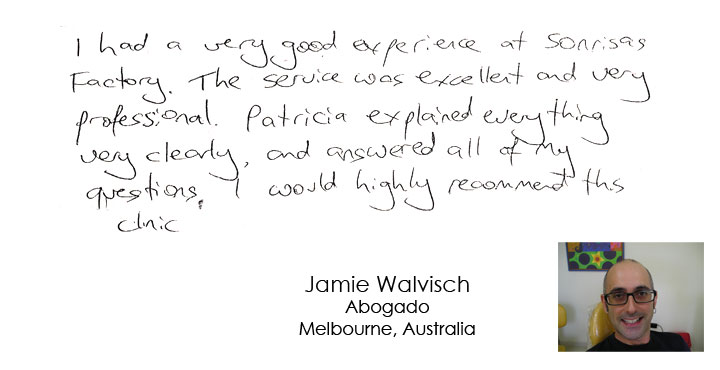 I had a very good experience at Sonrisas
Factory. The service was excellent and very
professional. Patricia explained everything
very clearly, and answered all of my
questions. I would highly recommend this
clinic
Jamie Walvisch
Abogado
Melbourne, Australia